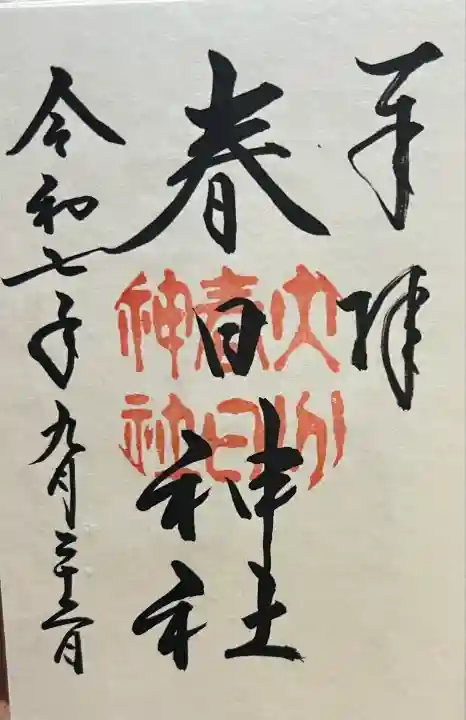 奉拝
春日神社
大分
春日
神社
令和七年九月